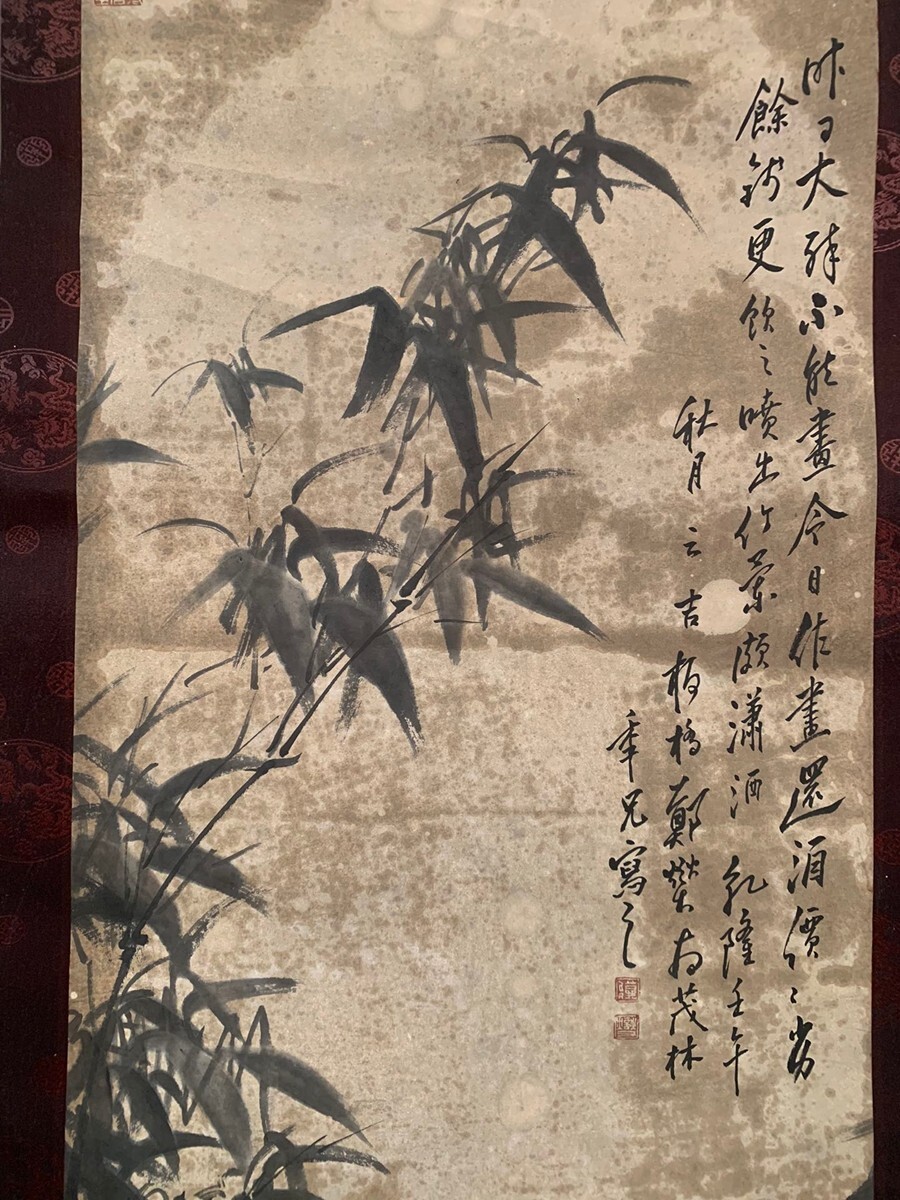 昨日大醉不能畫今日作畫還酒價〻尚
餘錢更飲之噴出竹葉頗瀟洒 乾隆壬午
秋月 之吉 板橋鄭燮為茂林
年兄寫之